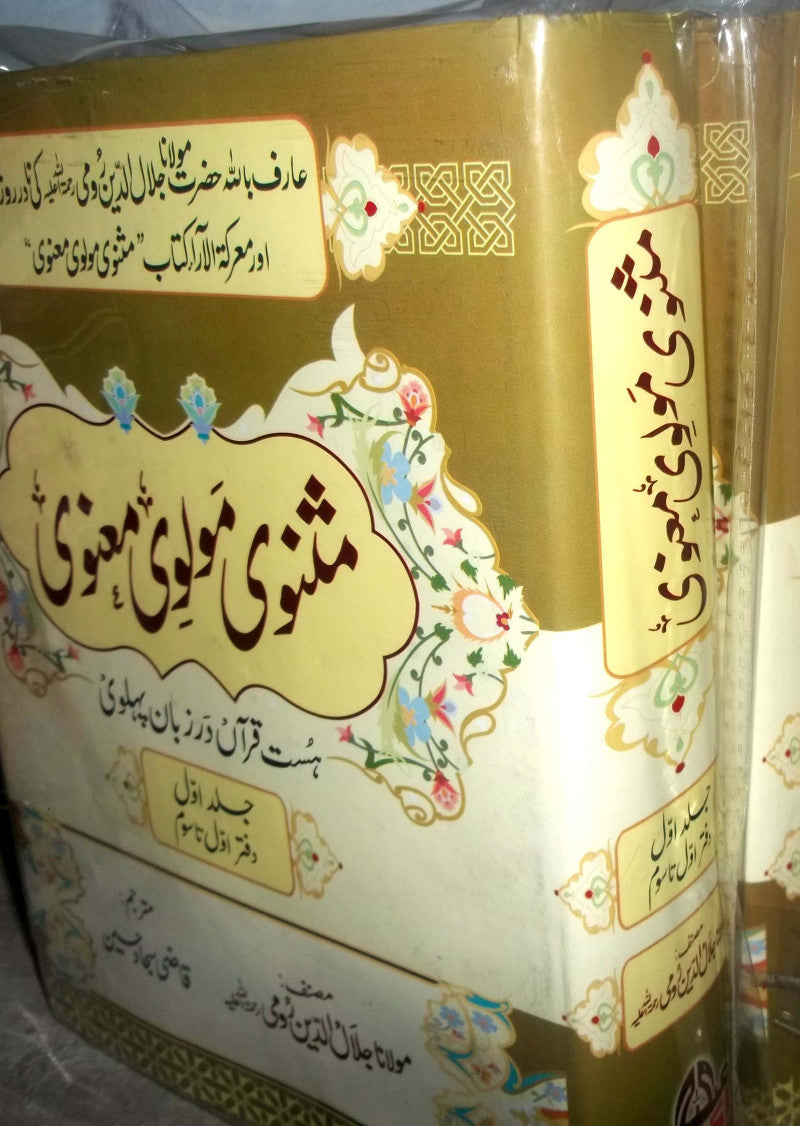 عارف باللہ حضرت مولانا جلال الدین رُومی رحمۃ اللہ علیہ کی نادر روز
اور معرکۃ الآراء کتاب ”مثنوی مولوی معنوی“
مثنوی مَولوِیٔ معنوی
ہست قرآں در زبان پہلوی
جلد اوّل
دفتر اوّل تا سوم
مترجم:
قاضی سجاد حسین
مصنف:
مولانا جلالُ الدّین رُومی رحمۃ اللہ علیہ
مثنوی مَولوِی معنوی
جلد اوّل
دفتر اوّل تا سوم
مصنف:
جلالُ الدّین رُومی رحمۃ اللہ علیہ